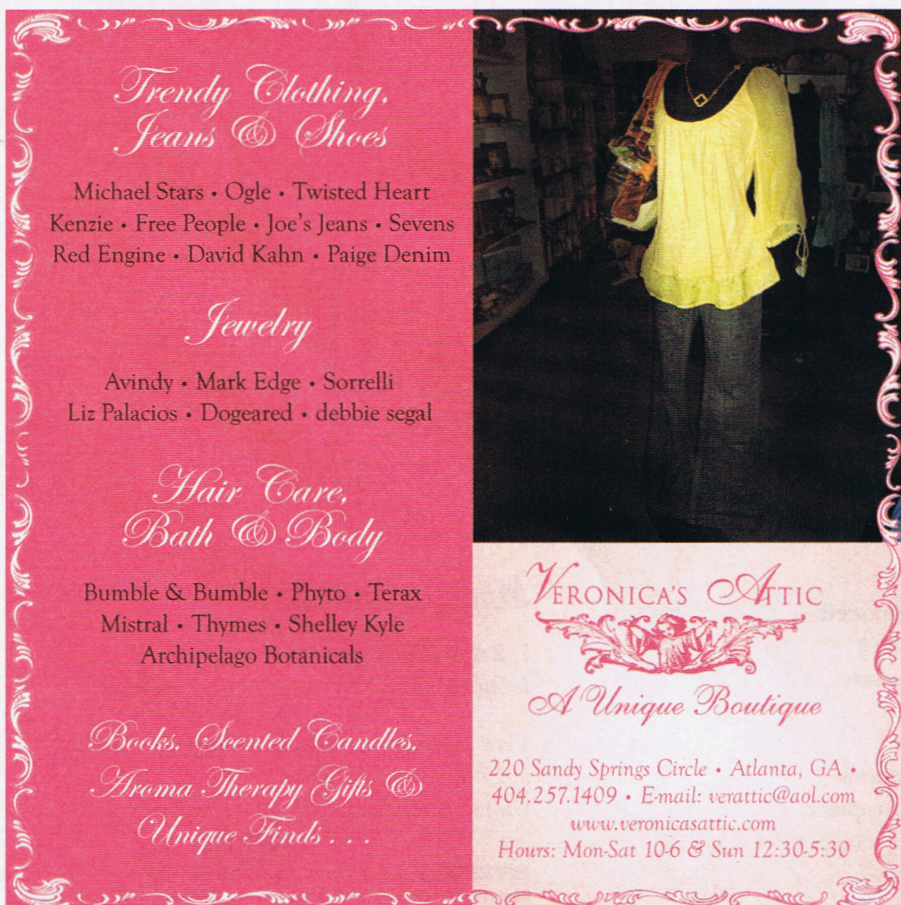 Trendy Clothing,
Jeans & Shoes
Michael Stars • Ogle • Twisted Heart
Kenzie • Free People • Joe's Jeans • Sevens
Red Engine • David Kahn • Paige Denim
Jewelry
Avindy • Mark Edge • Sorrelli
Liz Palacios • Dogeared • debbie segal
Hair Care,
Bath & Body
Bumble & Bumble • Phyto • Terax
Mistral • Thymes • Shelley Kyle
Archipelago Botanicals
Books, Scented Candles,
Aroma Therapy Gifts &
Unique Finds . . .
VERONICA'S ATTIC
A Unique Boutique
220 Sandy Springs Circle • Atlanta, GA •
404.257.1409 • E-mail: verattic@aol.com
www.veronicasattic.com
Hours: Mon-Sat 10-6 & Sun 12:30-5:30